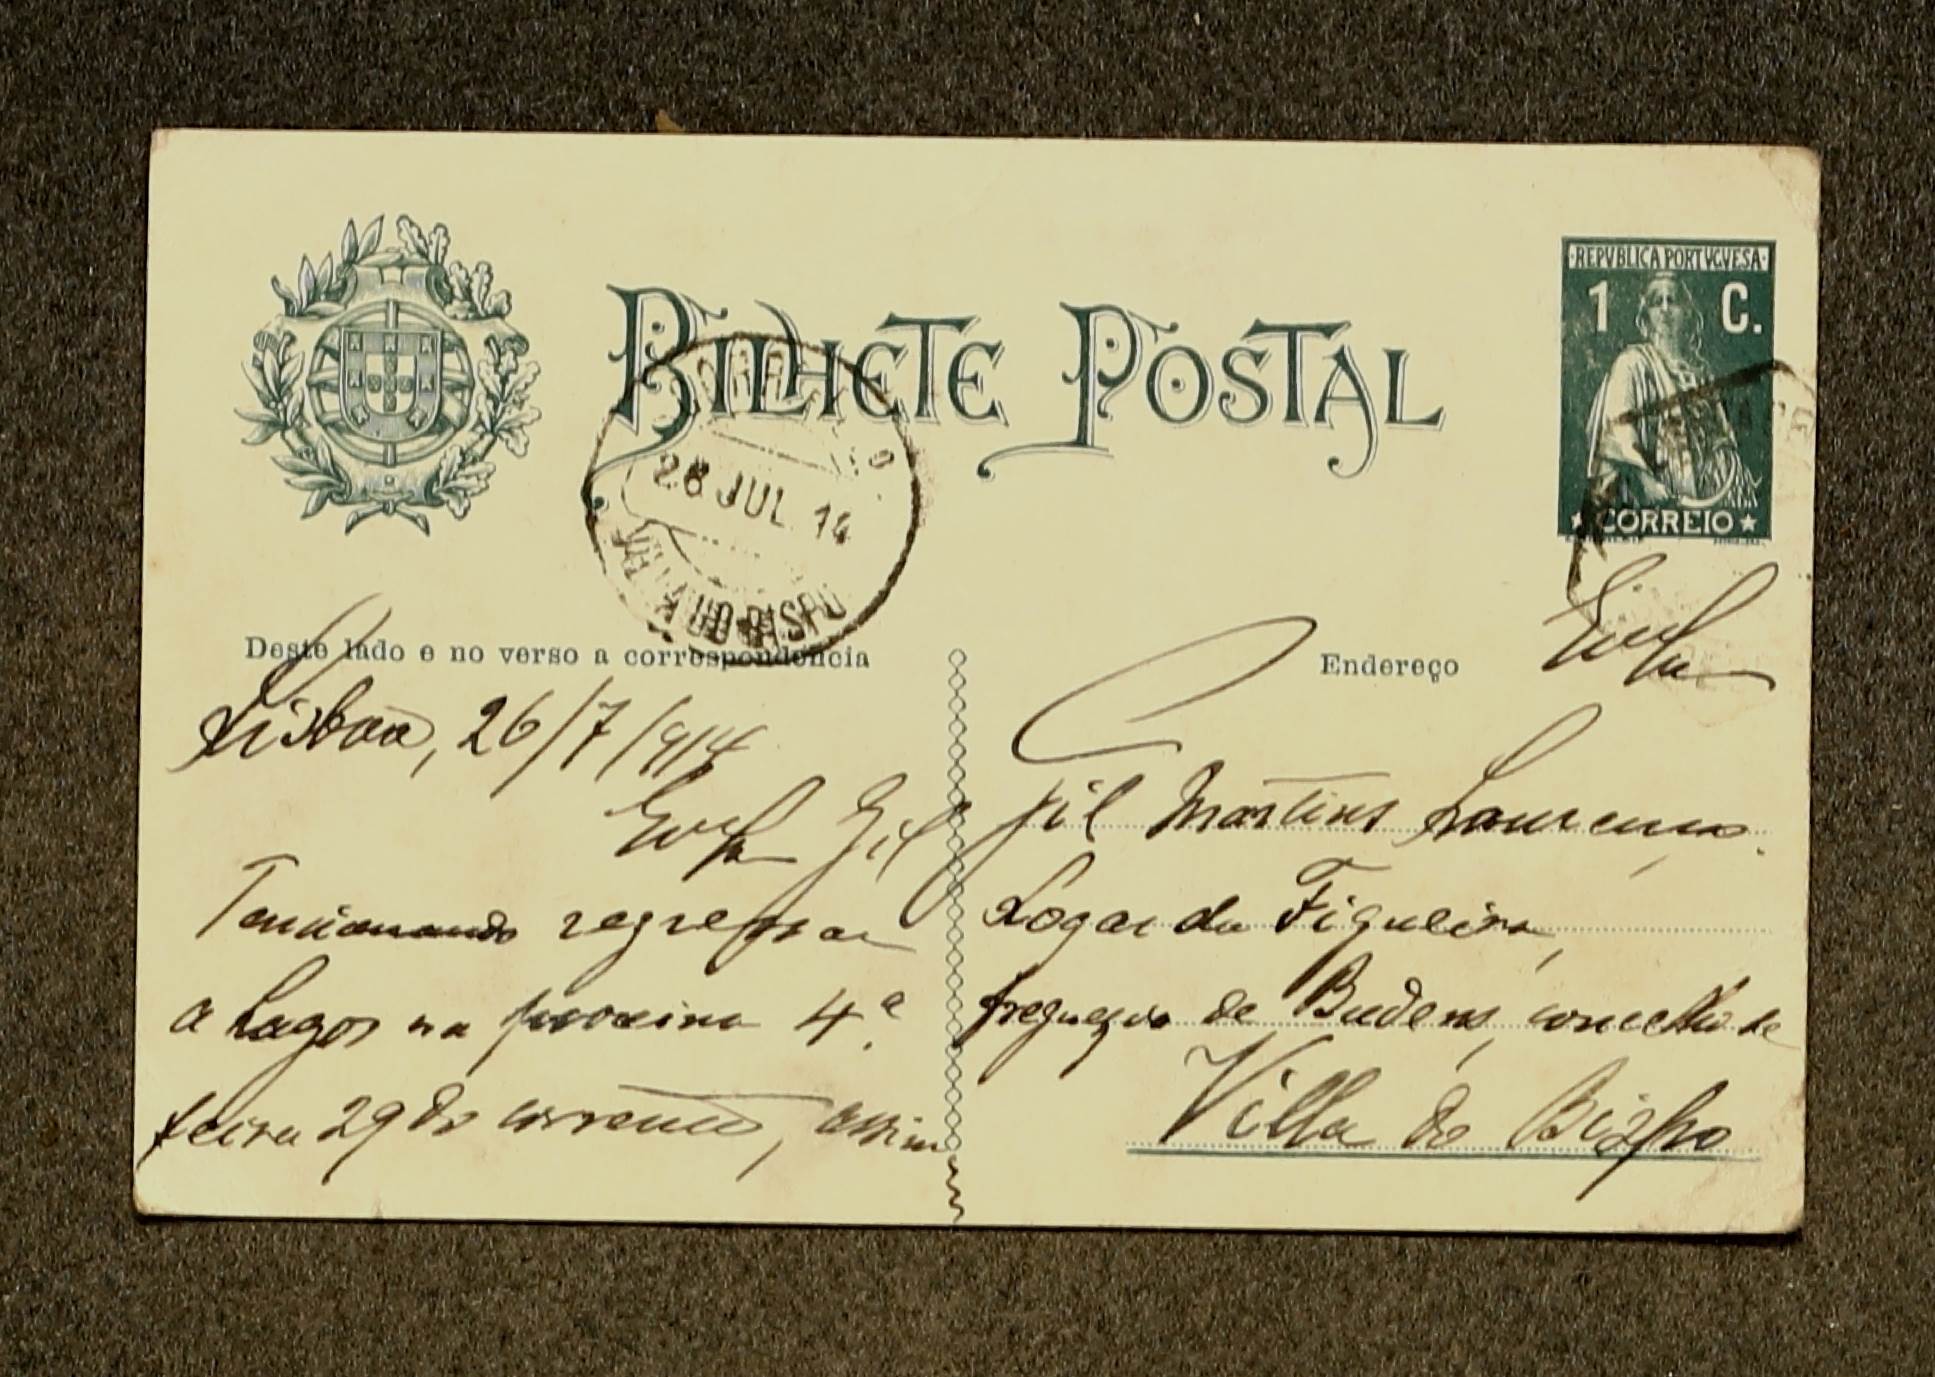 BILHETE POSTAL
·REPVBLICA PORTVGVESA·
1 C.
CORREIO
28 JUL 14
VILLA DO BISPO
Deste lado e no verso a correspondencia
Endereço
Lisboa, 26/7/914
Gil
Tencionando regressar
a Lagos na proxima 4.ª
feira 29 do corrente, assim
Gil Martins Lourenço.
Logar da Figueira,
freguezia de Budens, concelho de
Villa do Bispo